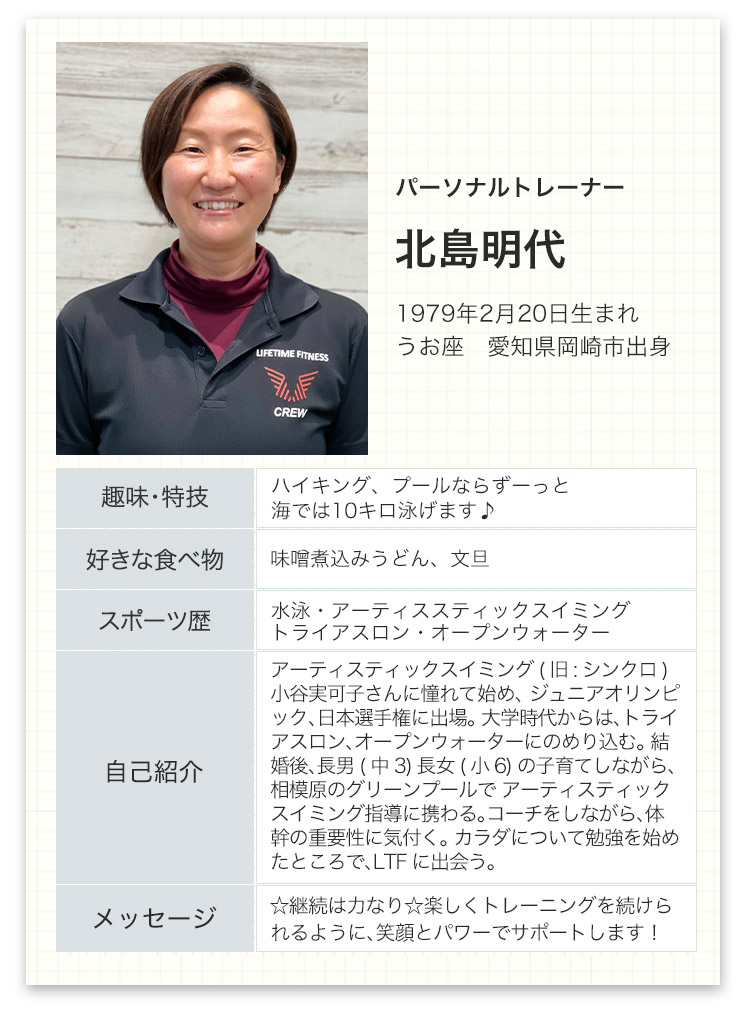 パーソナルトレーナー
北島明代
1979年2月20日生まれ
うお座　愛知県岡崎市出身
LIFETIME FITNESS
CREW
趣味･特技
ハイキング、プールならずーっと
海では10キロ泳げます♪
好きな食べ物
味噌煮込みうどん、文旦
スポーツ歴
水泳・アーティススティックスイミング
トライアスロン・オープンウォーター
自己紹介
アーティスティックスイミング ( 旧 : シンクロ )
小谷実可子さんに憧れて始め、ジュニアオリンピ
ック、日本選手権に出場。大学時代からは、トライ
アスロン、オープンウォーターにのめり込む。結
婚後、長男 ( 中 3) 長女 ( 小 6) の子育てしながら、
相模原のグリーンプールで アーティスティック
スイミング指導に携わる。コーチをしながら、体
幹の重要性に気付く。カラダについて勉強を始め
たところで、LTF に出会う。
メッセージ
☆継続は力なり☆楽しくトレーニングを続けら
れるように、笑顔とパワーでサポートします！